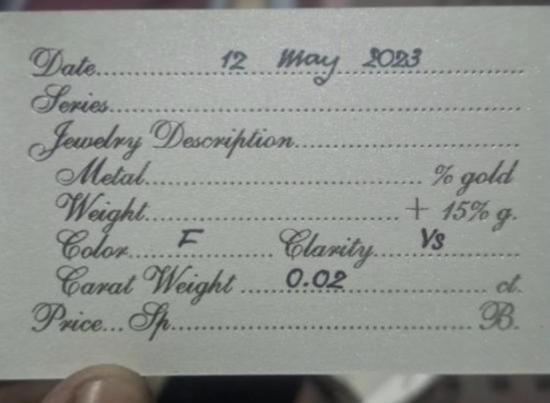 Date 12 May 2023
Series
Jewelry Description
Metal % gold
Weight + 15% g.
Color F Clarity VS
Carat Weight 0.02 ct.
Price... Sp. B.